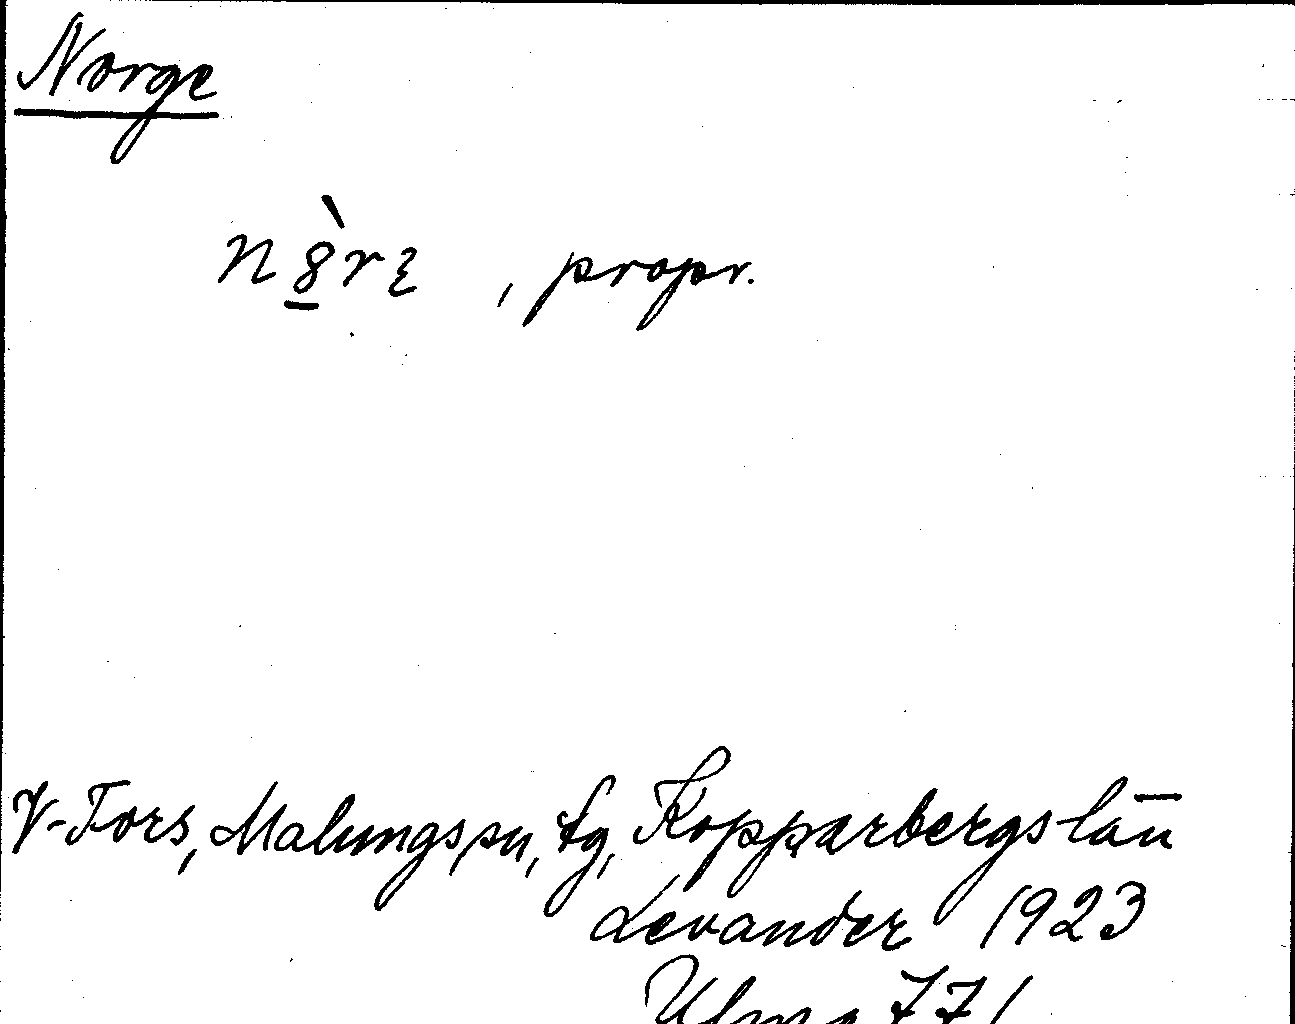 Norge
n8̲̀rꜫ, propr.
V-Fors, Malungs sn, tg, Kopparbergs län
Levander 1923
Ulma 771